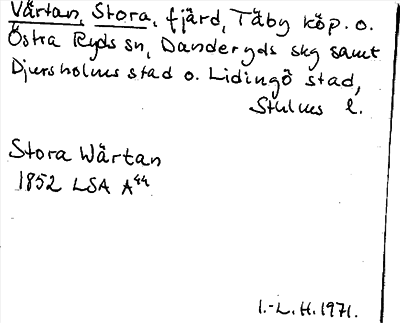 Värtan, Stora, fjärd, Täby köp. o.
Östra Ryds sn, Danderyds skg samt
Djursholms stad o. Lidingö stad,
Sthlms l.
Stora Wärtan
1852 LSA A44
I.-L. H. 1971.